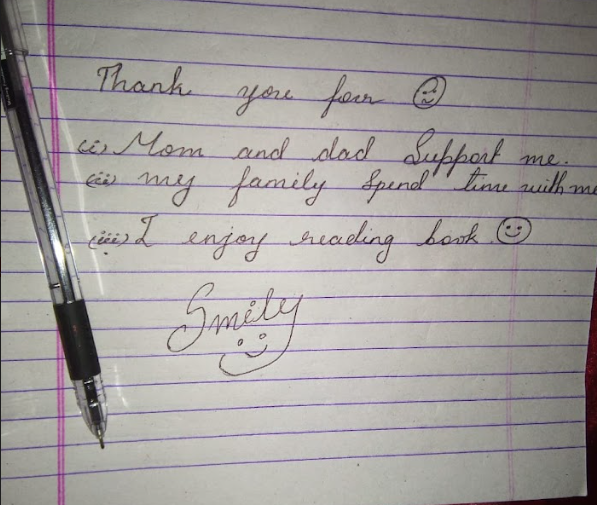 Thank you for
(i) Mom and dad Support me.
(ii) my family Spend time with me
(iii) I enjoy reading book.
Smily